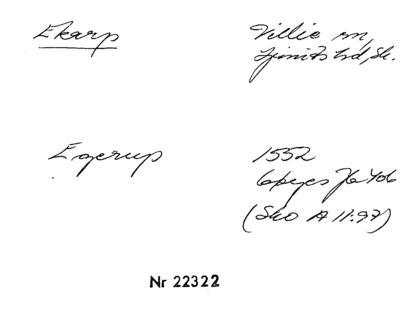 Ekarp
Villie sn,
Ljunits hd, Sk.
Egerup
1552
(Sko A 11:97)
Nr 22322